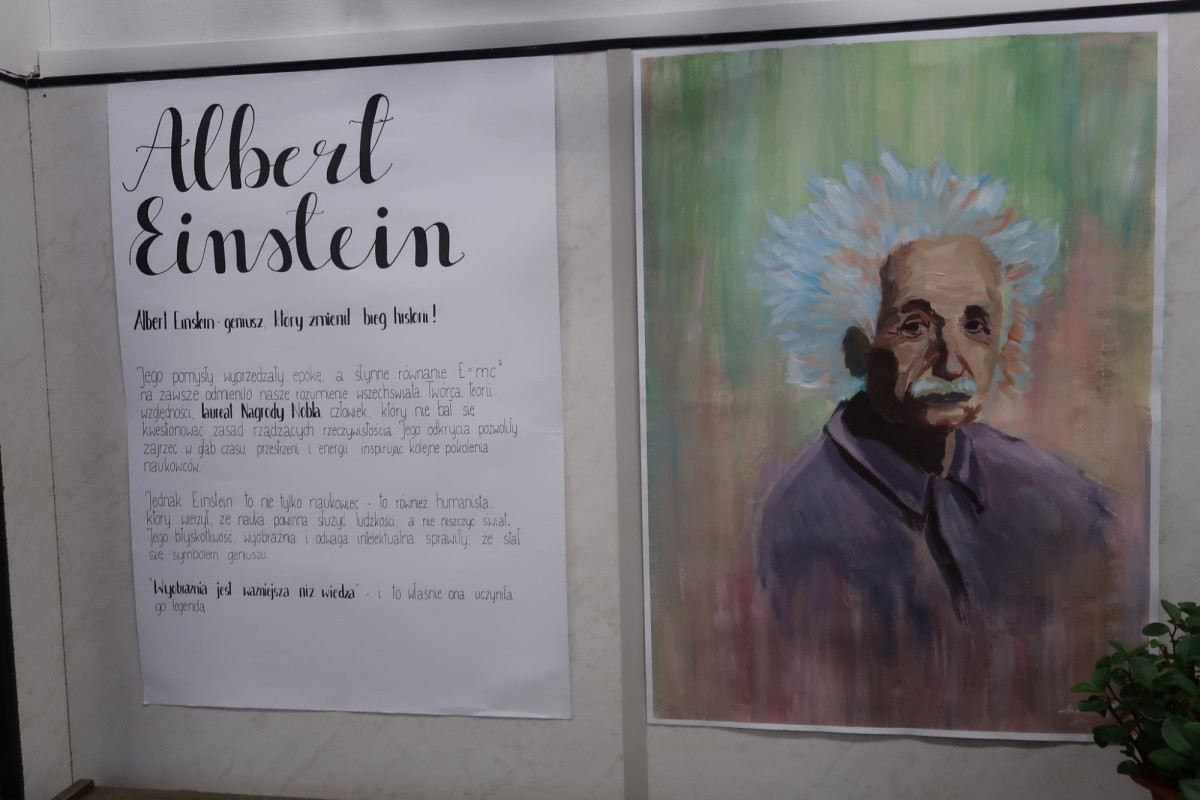 Albert
Einstein
Albert Einstein - geniusz, który zmienił bieg historii!
Jego pomysły wyprzedzały epokę, a słynne równanie E=mc²
na zawsze odmieniło nasze rozumienie wszechświata. Twórca teorii
względności, laureat Nagrody Nobla, człowiek, który nie bał się
kwestionować zasad rządzących rzeczywistością. Jego odkrycia pozwoliły
zajrzeć w głąb czasu, przestrzeni i energii inspirując kolejne pokolenia
naukowców.
Jednak Einstein to nie tylko naukowiec - to również humanista,
który wierzył, że nauka powinna służyć ludzkości, a nie niszczyć świat.
Jego błyskotliwość, wyobraźnia i odwaga intelektualna sprawiły, że stał
się symbolem geniuszu.
"Wyobraźnia jest ważniejsza niż wiedza" - i to właśnie ona uczyniła
go legendą